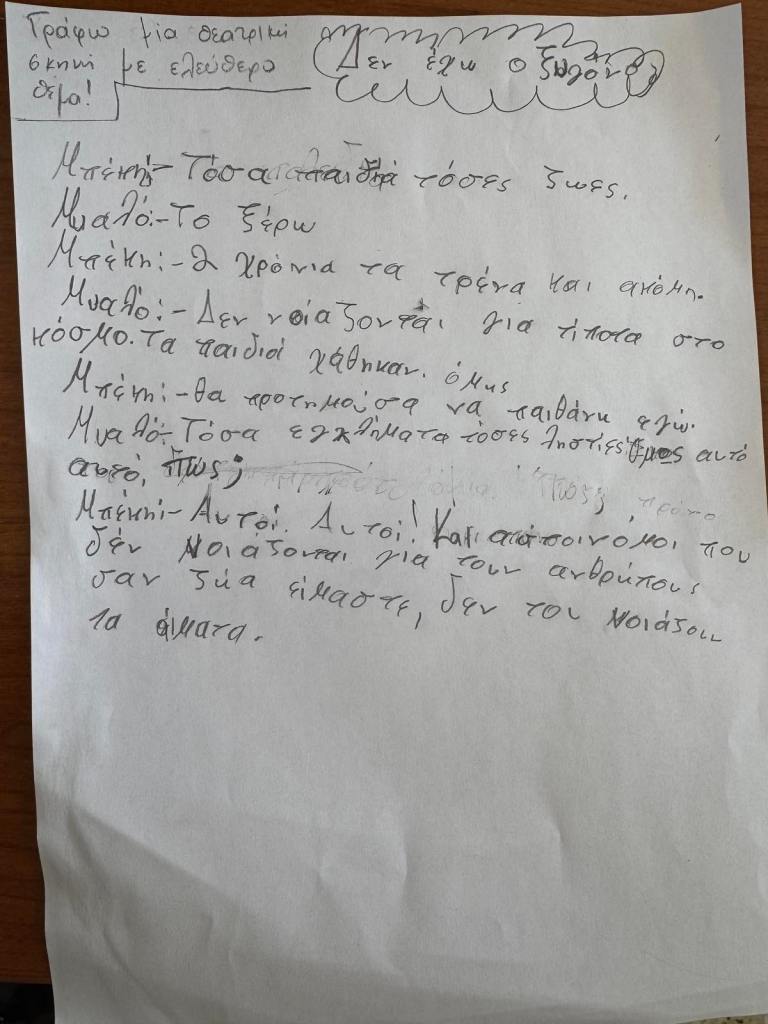 Γράφω μία θεατρική
σκηνή με ελεύθερο
θέμα!
Δεν έχω οξυγόνο
Μπέκη:- Τόσα παιδιά τόσες ζωες.
Μυαλό:- Το ξέρω
Μπέκη:- 2 χρόνια τα τρένα και ακόμη.
Μυαλό:- Δεν νοιάζονται για τίποτα στο
κόσμο. Τα παιδιά χάθηκαν. όμως
Μπέκη:- θα προτημούσα να παιθάνω εγώ.
Μυαλό:- Τόσα εγκλήματα τόσες ληστιές όμως αυτό
αυτό, πώς;
Μπέκη:- Αυτοί. Αυτοί! Και οι που
δέν νοιάζονται για τουν ανθρώπους
σαν ζώα είμαστε, δεν του νοιάζουν
τα άιματα.